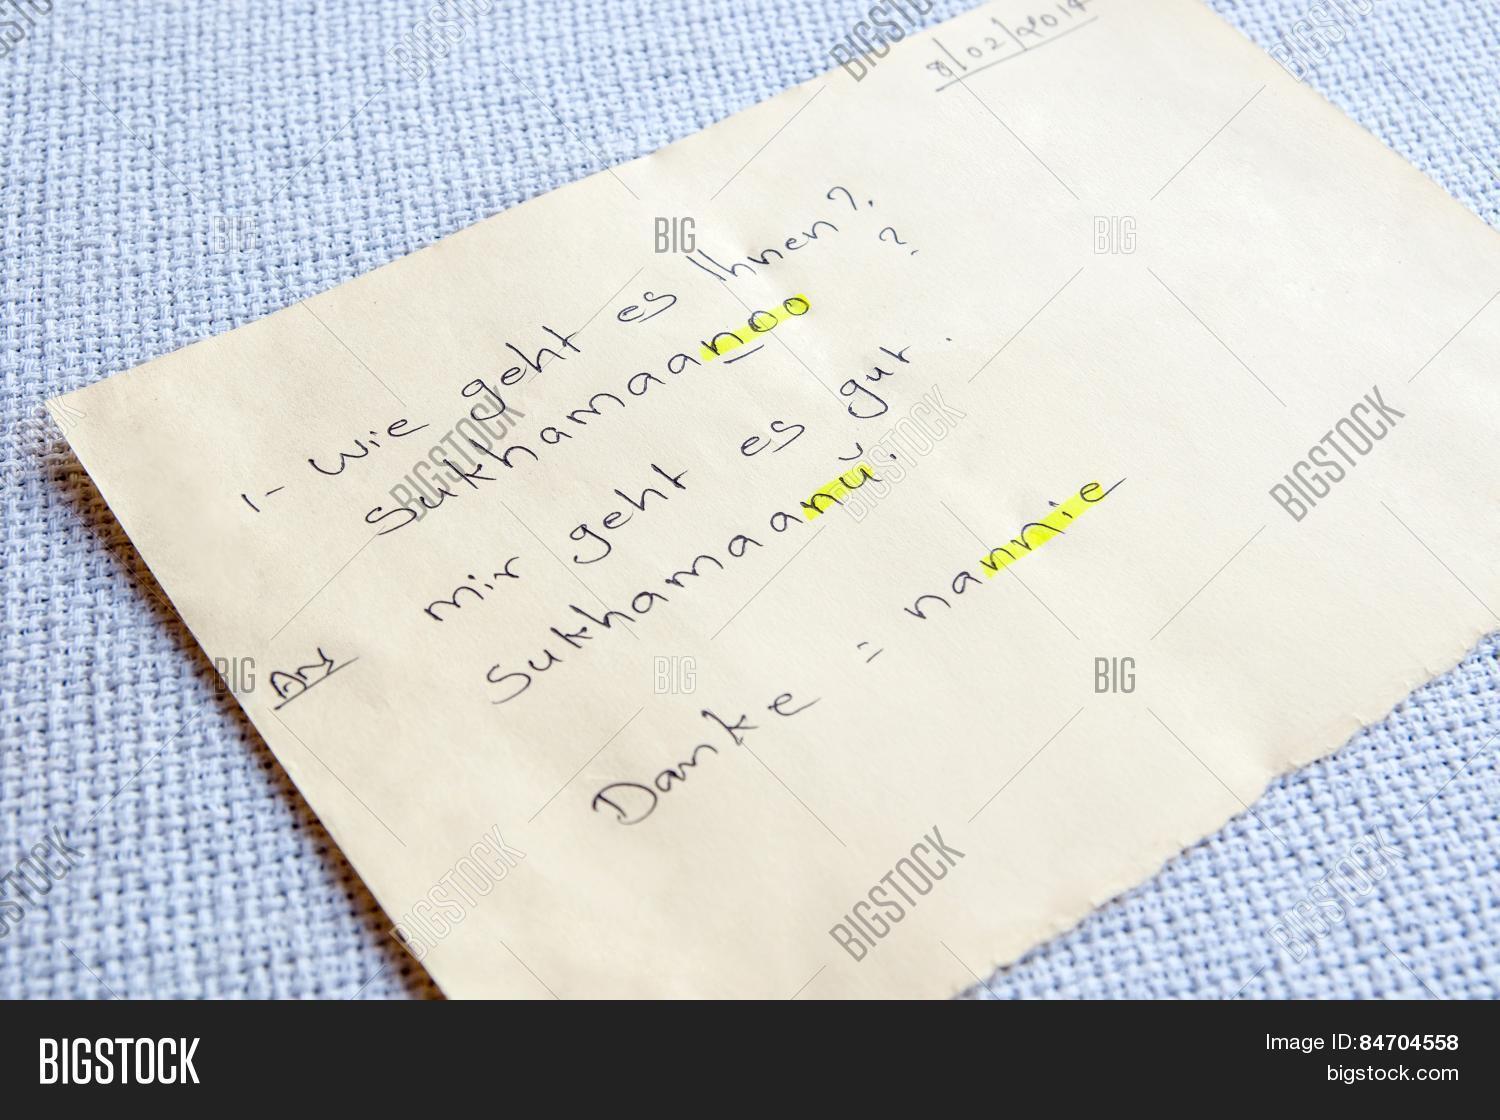 8/02/2014
1- Wie geht es Ihnen?.
Sukhamaanoo ?
Ans mir geht es gut.
Sukhamaanu.
Danke = nannie
BIGSTOCK
Image ID:84704558
bigstock.com